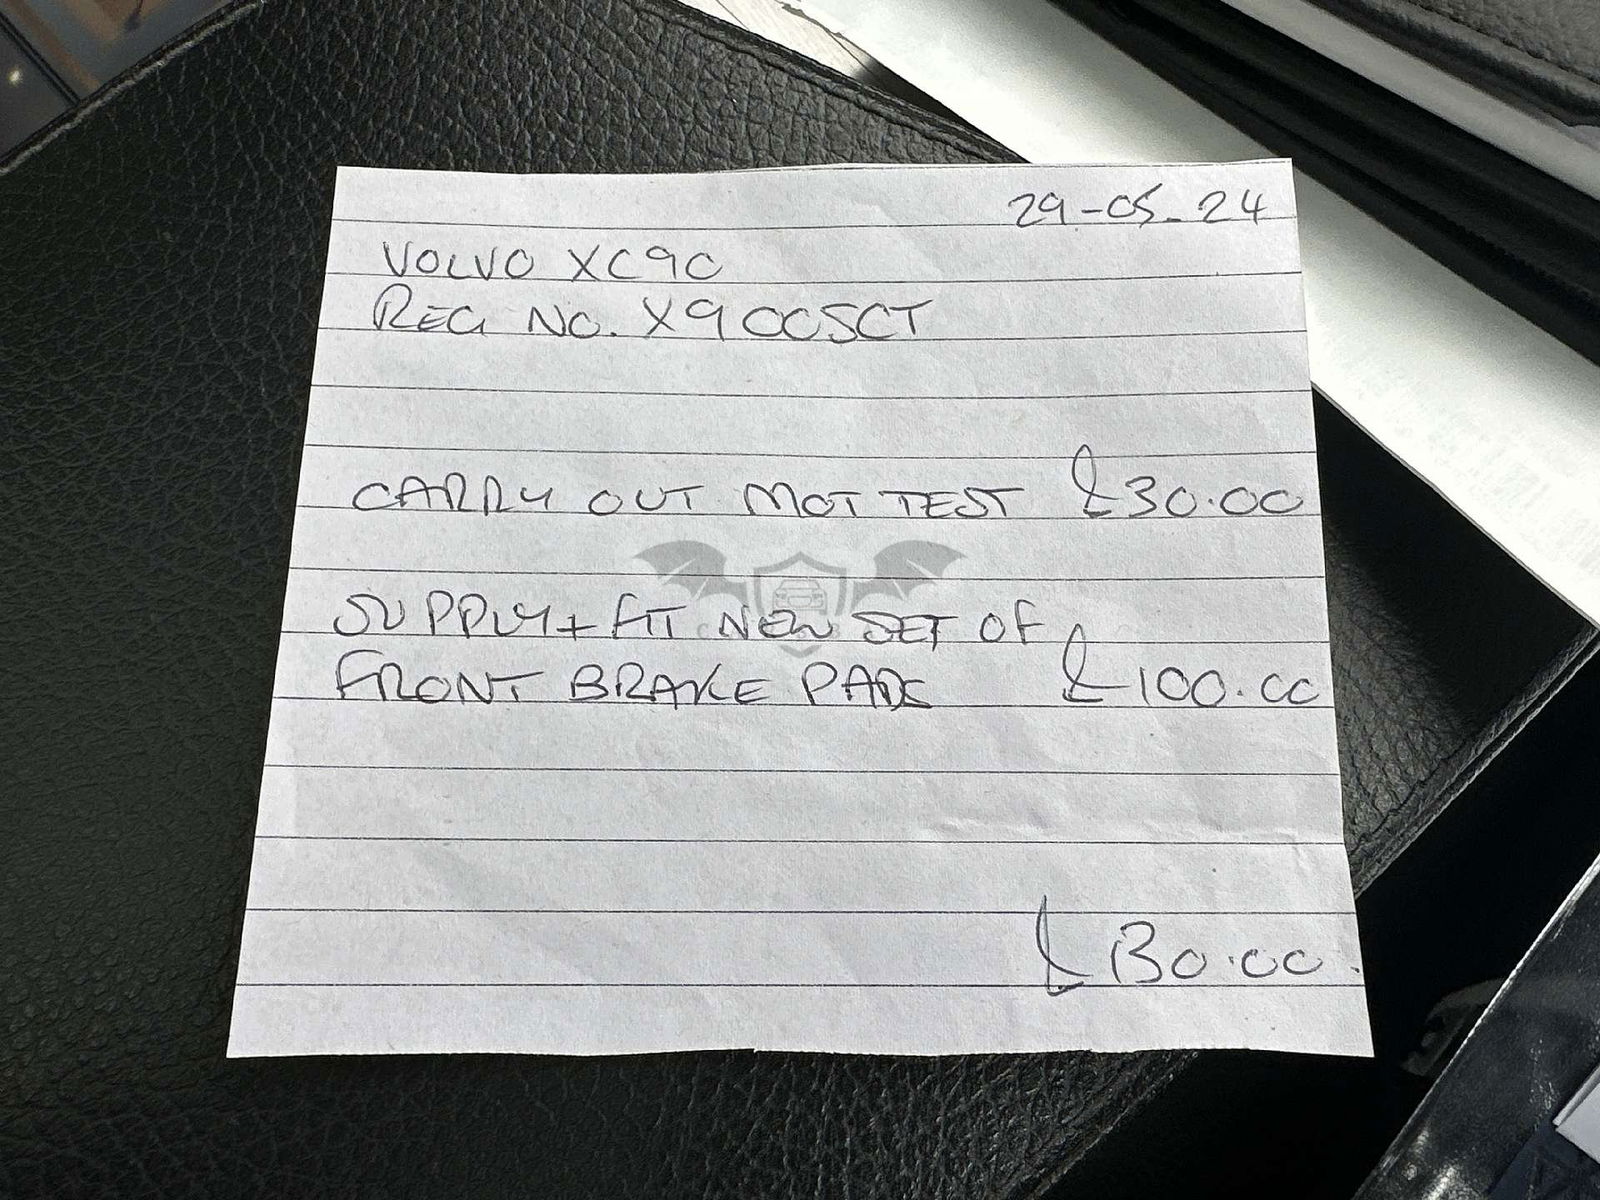 29-05-24
VOLVO XC90
REG NO. X900SCT
CARRY OUT MOT TEST £30.00
SUPPLY + FIT NEW SET OF
FRONT BRAKE PADS £100.00
£130.00.